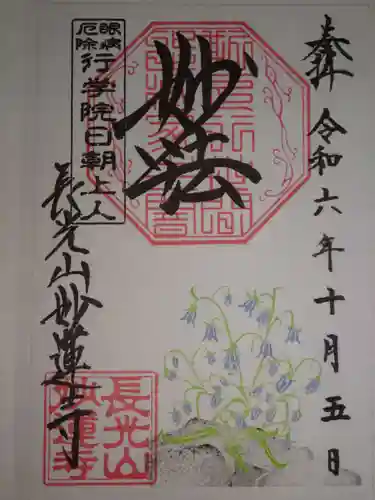 奉拝
令和六年十月五日
妙法
眼病
厄除
行学院日朝上人
長光山妙蓮寺
長光山
妙蓮寺